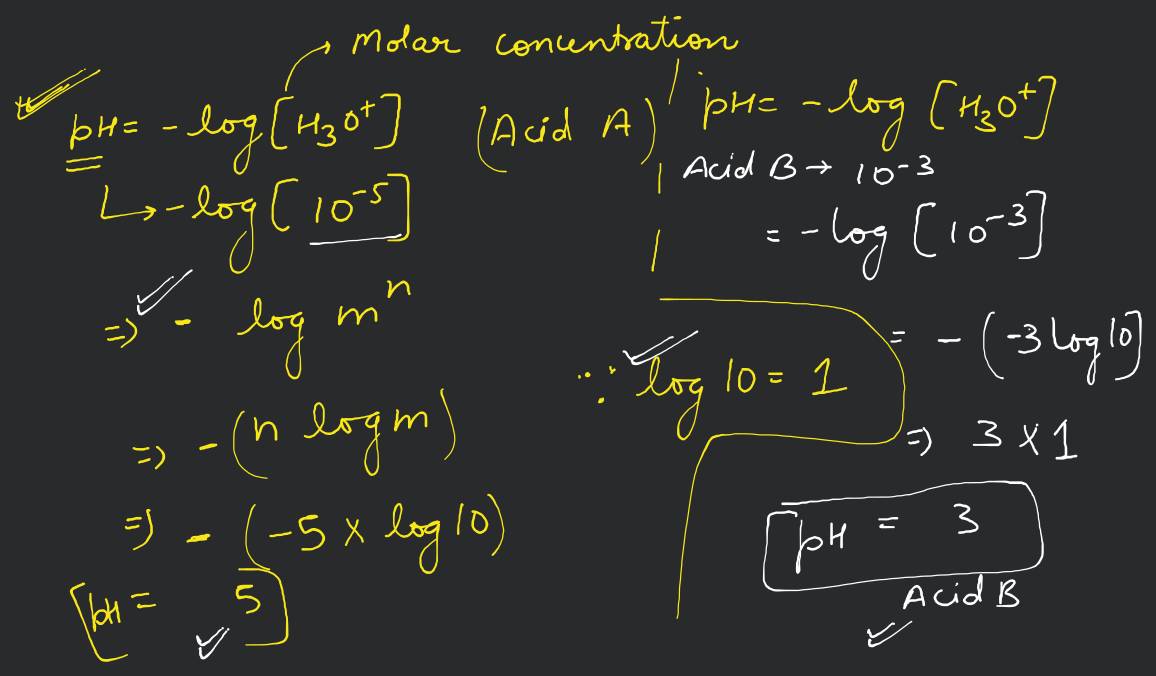 Molar concentration
pH = -log[H₃O⁺] (Acid A)
↳ -log[10⁻⁵]
⇒ - log mⁿ
⇒ -(n log m)
⇒ - (-5 × log 10)
[pH = 5]
∵ log 10 = 1
pH = -log [H₃O⁺]
Acid B → 10⁻³
= -log [10⁻³]
= - (-3 log 10]
⇒ 3 × 1
pH = 3
Acid B